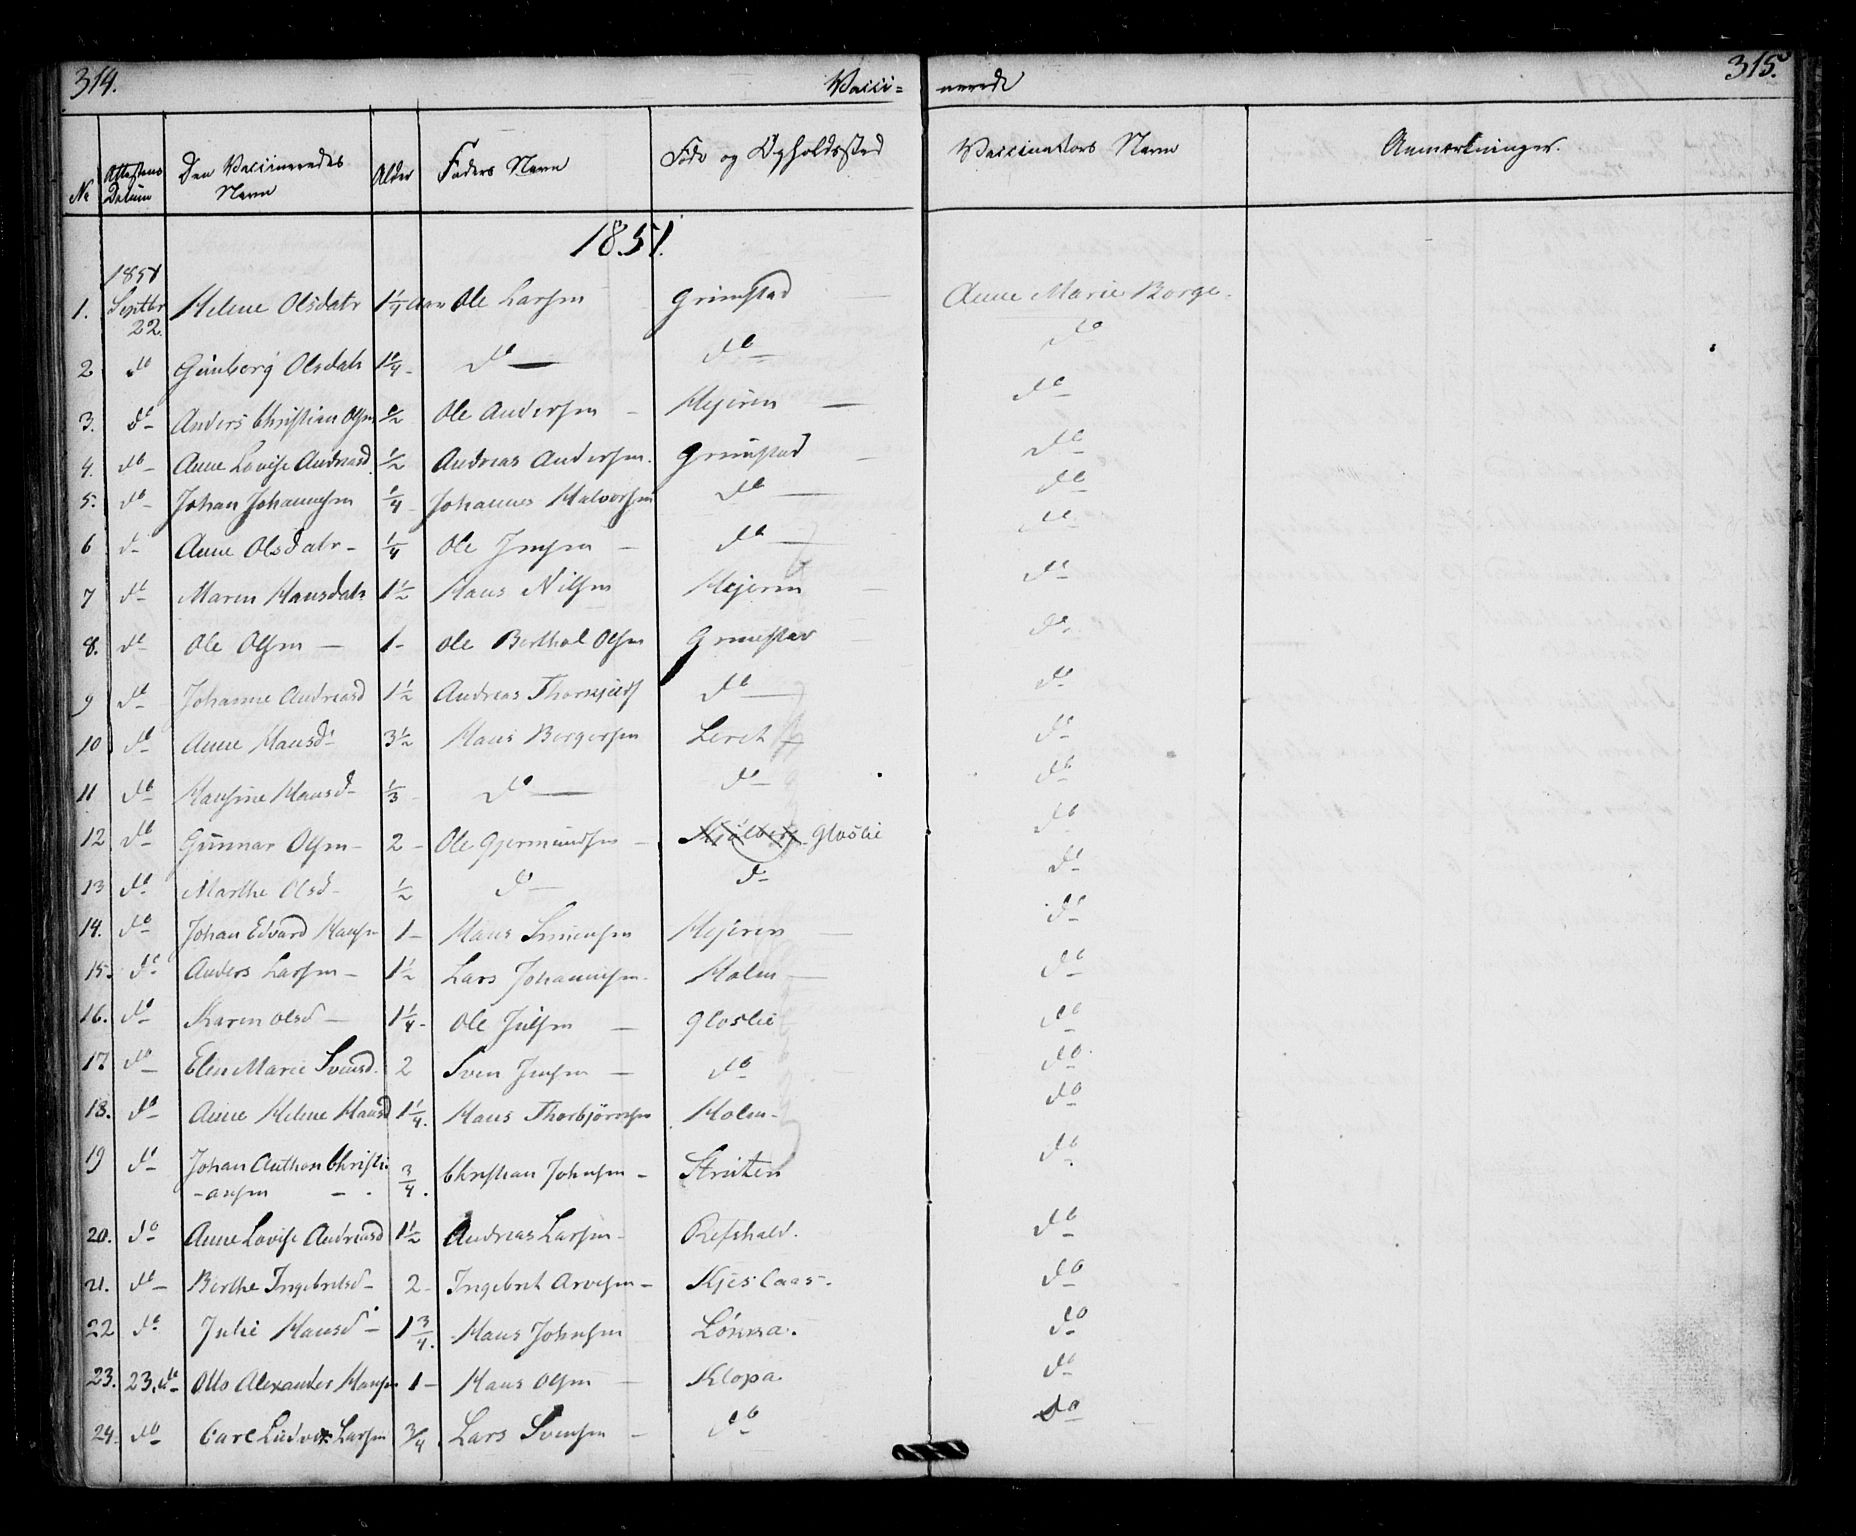 314. Vacci= nerede 315.
No Attestens Datum Den Vaccineredes Navn Alder Faders Navn Føde og Opholdssted Vaccinators Navn Anmærkninger.
1851.
1851
1. Septbr 22. Helene Olsdatr 1 1/4 Aar Ole Larsen Grimstad — Anne Marie Borge.
2 do Gunborg Olsdatr 1 1/4 - do — do — do
3. do Anders Christian Olsen 1/2 Ole Andersen — Hejeren — do
4. do Anne Lovise Andreasd. 1/2 Andreas Andersen. Grimstad — do
5. do Johan Johannesen 1/4 Johannes Halvorsen do — do
6 do Anne Olsdatr - 1/4 Ole Jensen — do — do
7 do Maren Hansdatr 1 1/2 Hans Nilsen Hejeren — do
8. do Ole Olsen — 1 - Ole Berthel Olsen Grimstad — do
9 do Johanne Andreasd 1 1/2 Andreas Thorkjelds do — do
10 do Anne Hansd - 3 1/2 Hans Borgersen Leret — do
11 do Hansine Hansd - 1/3 - do — do do
12 do Gunnar Olsen - 2 - Ole Gjermundsen — Gloslie do
13 do Marthe Olsd - 1/2 do — do do
14. do Johan Edvard Hansen 1 - Hans Simensen Hejeren — do
15. do Anders Larsen - 1 1/2 Lars Johannesen. Holm — do
16. do Karen Olsd — 1 1/4 - Ole Julsen — Gloslie do
17 do Elen Marie Svensd. 2 Sven Jensen — do do
18. do Anne Helene Hansd 1 1/4. Hans Thorbjørnsen Holm - do
19 do Johan Anthon Christi
-ansen — . 3/4. Christian Johnsen - Struten do
20. do Anne Lovise Andreasd 1 1/2 Andreas Larsen - Refshald. do
21. do Berthe Ingebretsd - 2 - Ingebret Arvesen - Kjes Caas -. do
22 do Julie Hansd - 1 3/4. Hans Johnsen Løkka. do
23. 23. do Otto Alexander Hansen 1 - Hans Olsen — Klopa. do
24. do Carl Ludvik Larsen 3/4 Lars Svensen — do do